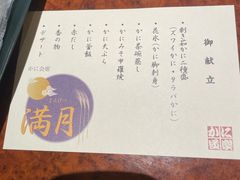 御献立
・刺身かに二種盛
(ズワイかに・タラバかに)
・花氷(かに御刺身)
・かに茶碗蒸し
・かにみそ甲羅焼
・かに天ぷら
・かに釜飯
・赤だし
・香の物
・デザート
かに会席
満月
まんげつ